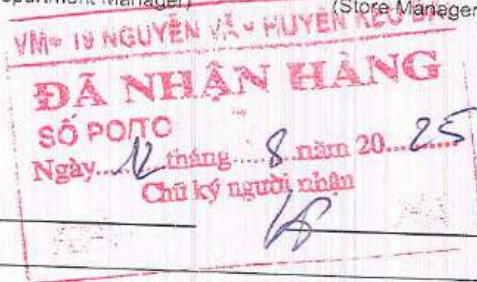 Department Manager) (Store Manager
VM+ 19 NGUYỄN VĂ HUYÊN
ĐÃ NHẬN HÀNG
SỐ PO/TO
Ngày....12 tháng.....8.năm 20...25
Chữ ký người nhận